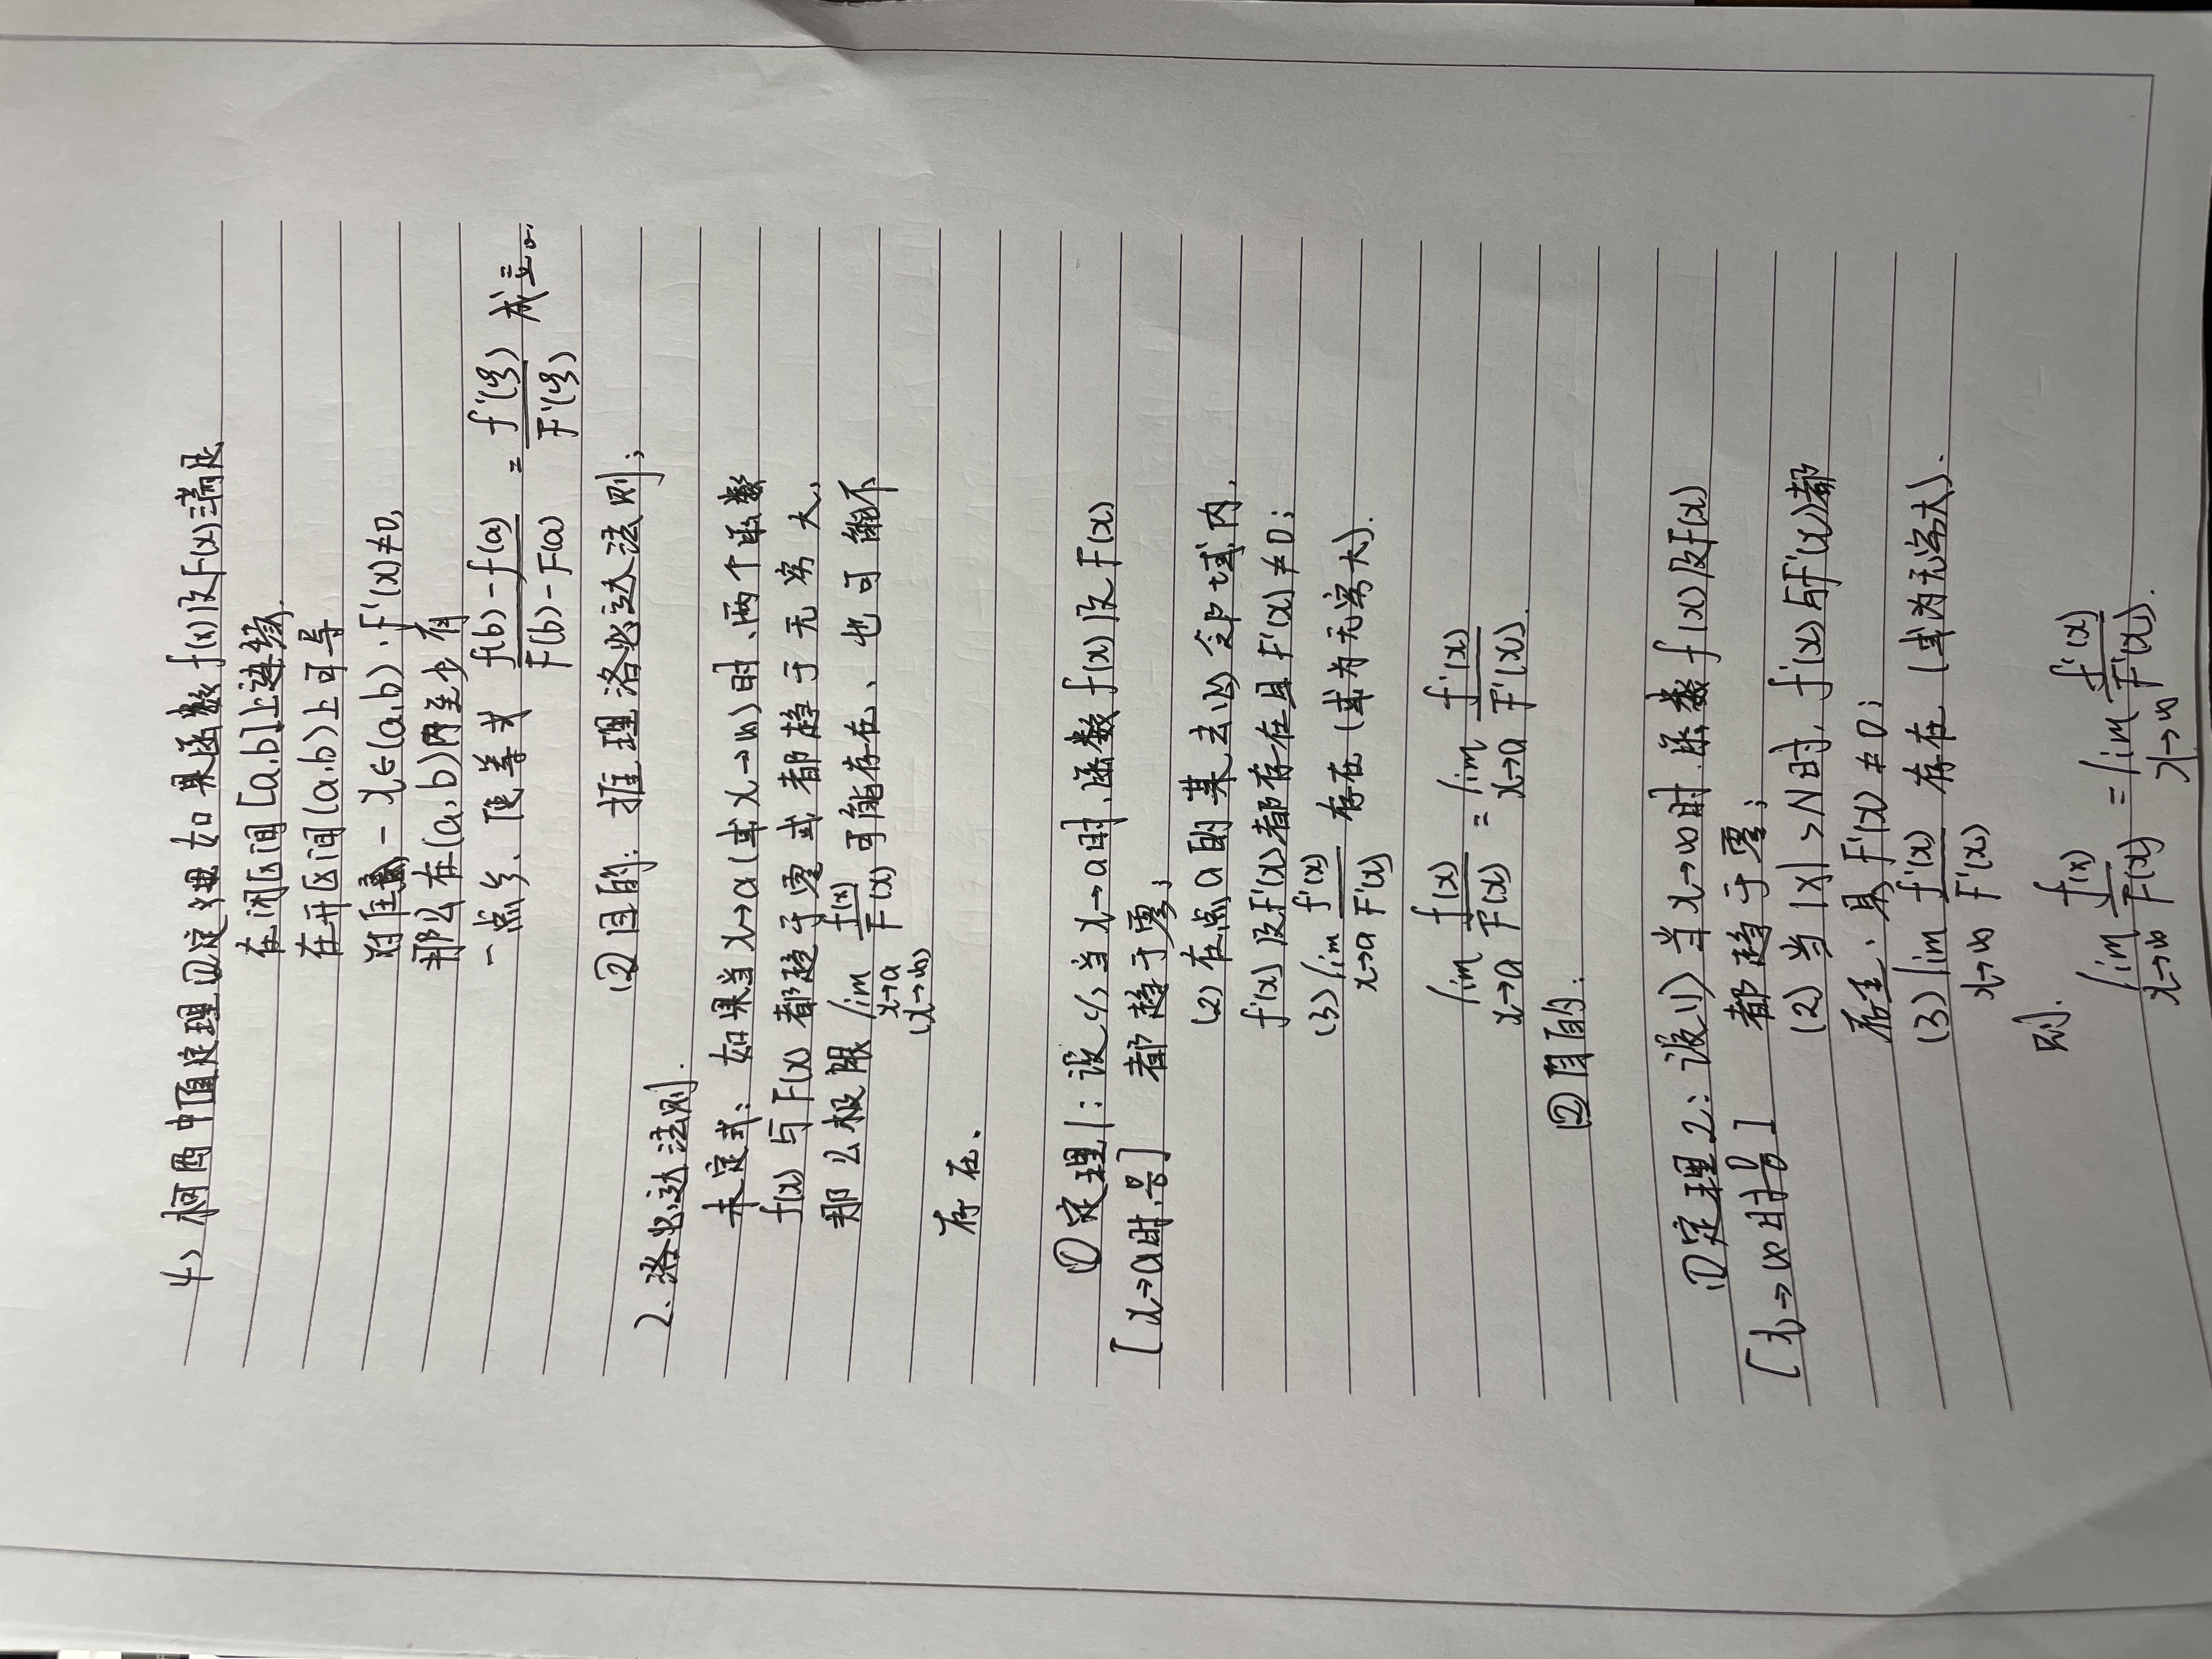 4) 柯西中值定理 ①定义: 如果函数 f(x) 及 F(x) 满足
在闭区间 [a,b] 上连续.
在开区间 (a,b) 上可导
对任意一 x∈(a,b), F'(x)≠0,
那么在 (a,b) 内至少有
一点ξ, 使等式 (f(b)-f(a))/(F(b)-F(a)) = f'(ξ)/F'(ξ) 成立。
②目的: 推理洛必达法则;
2. 洛必达法则.
未定式: 如果当 x→a (或 x→∞) 时、两个函数
f(x) 与 F(x) 都趋于零或都趋于无穷大,
那么极限 lim f(x)/F(x) 可能存在、也可能不
x→a
(x→∞)
存在.
①定理1: 设 (1) 当 x→a 时, 函数 f(x) 及 F(x)
[x→a时, 0/0] 都趋于零;
(2) 在点 a 的某去心邻域内,
f'(x) 及 F'(x) 都存在且 F'(x)≠0;
(3) lim f'(x)/F'(x) 存在 (或为无穷大).
x→a
lim f(x)/F(x) = lim f'(x)/F'(x).
x→a x→a
②目的:
①定理2: 设 (1) 当 x→∞ 时, 函数 f(x) 及 F(x)
[x→∞时 0/0] 都趋于零;
(2) 当 |x|>N 时, f'(x) 与 F'(x) 都
存在、且 F'(x)≠0;
(3) lim f'(x)/F'(x) 存在 (或为无穷大).
x→∞
则.
lim f(x)/F(x) = lim f'(x)/F'(x).
x→∞ x→∞